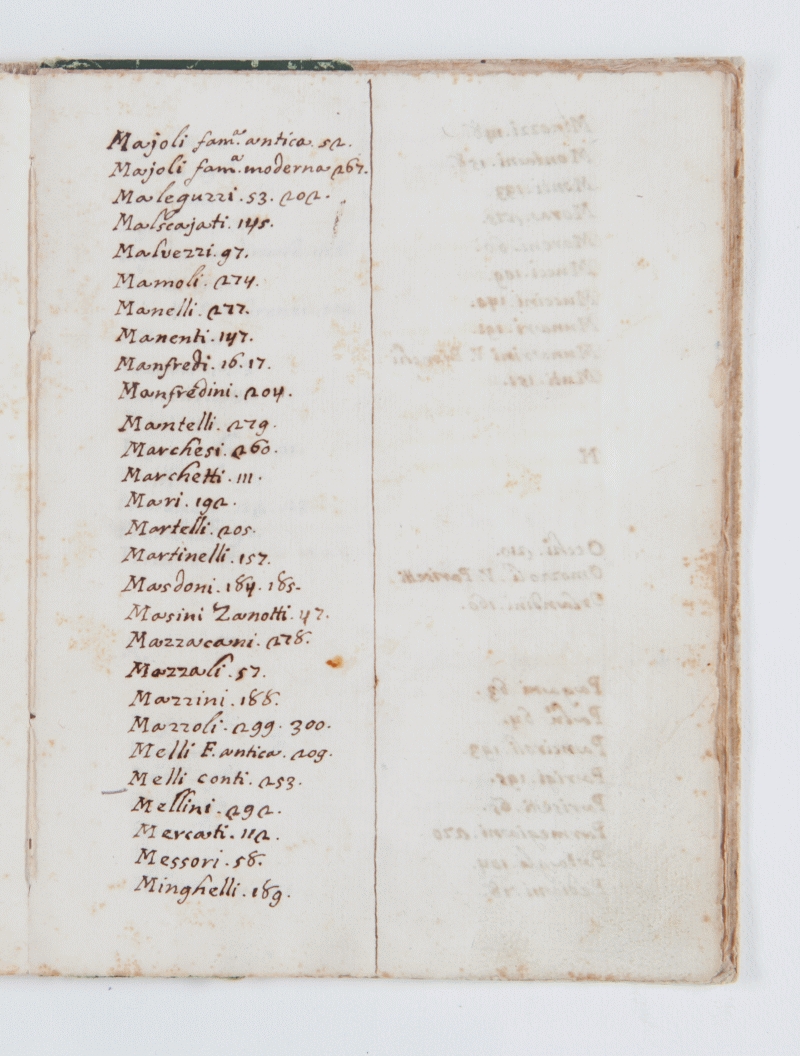 Majoli fam.ª antica. 52.
Majoli fam.ª moderna 267.
Maleguzzi. 53. 202.
Malscajati. 145.
Malvezzi. 97.
Mamoli. 274.
Manelli. 277.
Manenti. 147.
Manfredi. 16. 17.
Manfredini. 204.
Mantelli. 279.
Marchesi. 260.
Marchetti. 111.
Mari. 192.
Martelli. 205.
Martinelli. 157.
Masdoni. 184. 185.
Masini Zanotti. 47.
Mazzacani. 278.
Mazzali. 57.
Mazzini. 188.
Mazzoli. 299. 300.
Melli F. antica. 209.
Melli conti. 253.
Mellini. 292.
Mercati. 112.
Messori. 58.
Minghelli. 189.